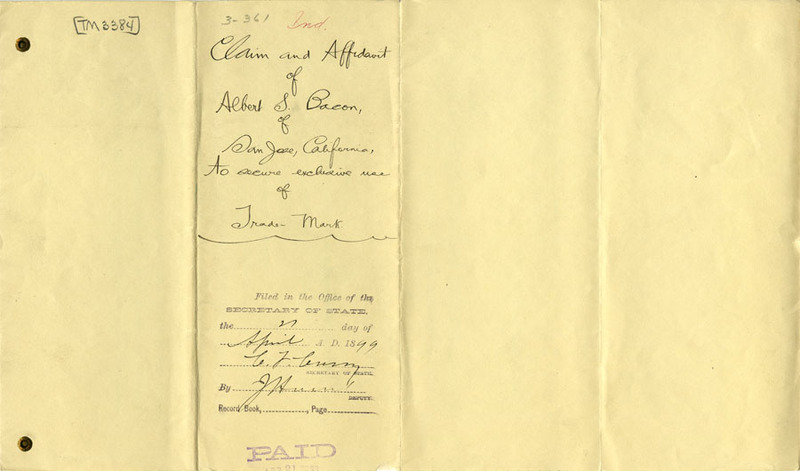 TM3384
3-361 Ind.
Claim and Affidavit
of
Albert S. Bacon,
of
San Jose, California,
to secure exclusive use
of
Trade-Mark
Filed in the Office of the
SECRETARY OF STATE,
the day of
April A. D. 1899
C. F. Curry
SECRETARY OF STATE.
By
DEPUTY.
Record Book, Page
PAID